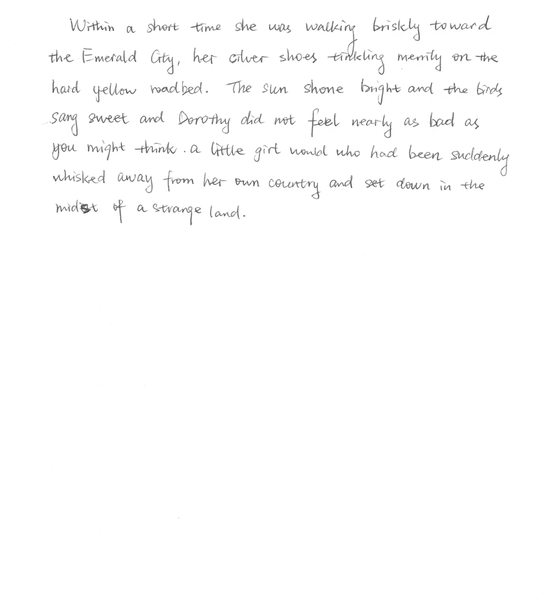 Within a short time she was walking briskly toward
the Emerald City, her cilver shoes tinkling merrily on the
hard yellow roadbed. The sun shone bright and the birds
sang sweet and Dorothy did not feel nearly as bad as
you might think a little girl would who had been suddenly
whisked away from her own country and set down in the
midst of a strange land.